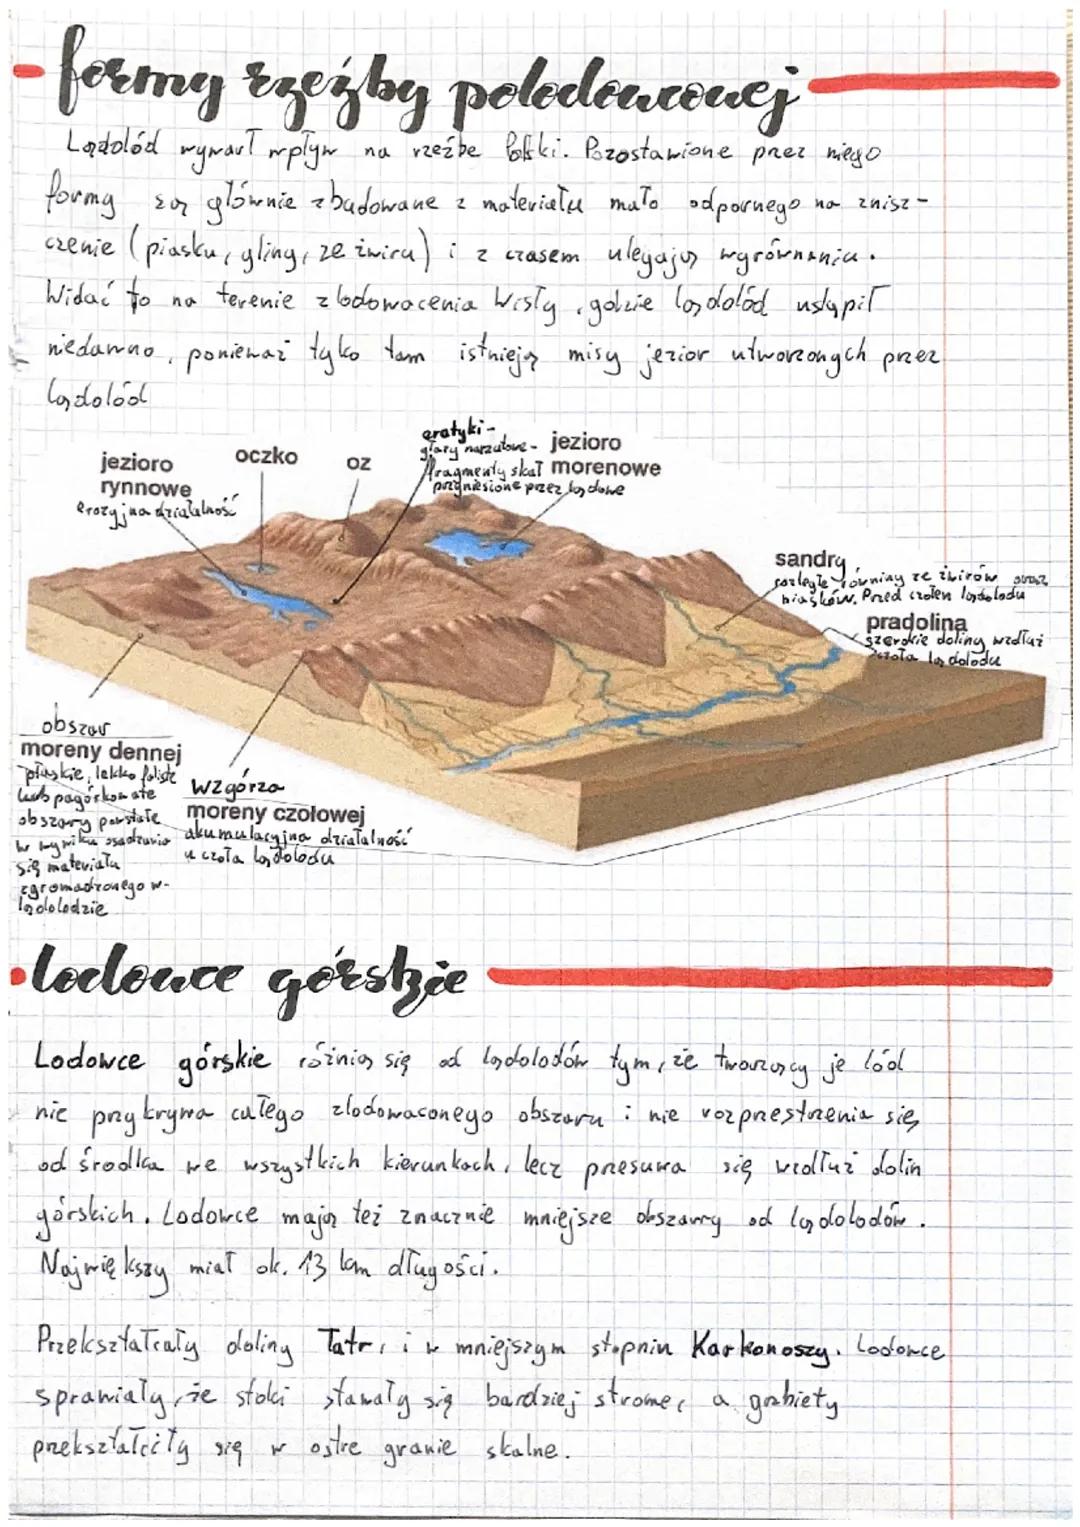 formy rzeźby polodowcowej
Lądolód wywarł wpływ na rzeźbe Polski. Pozostawione przez niego
formy są głównie zbudowane z materiału mało odpornego na znisz-
czenie (piasku, gliny, ze żwiru) i z czasem ulegają wyrównaniu.
Widać to na terenie zlodowacenia Wisły, gdzie lądolód ustąpił
niedawno, ponieważ tylko tam istnieją misy jezior utworzonych przez
lądolód
eratyki-
głazy narzutowe-
fragmenty skał
przyniesione przez lądowe
jezioro
morenowe
oczko
oz
jezioro
rynnowe
erozyjna działalność
sandry
rozległe równiny ze żwirów oraz
piasków. Przed czołem lądolodu
pradolina
szerokie doliny wzdłuż
czoła lądolodu
obszar
moreny dennej
płaskie, lekko faliste
lub pagórkowate
obszary powstałe
w wyniku osadzania
się materiału
zgromadzonego w-
lądolodzie
wzgórza
moreny czołowej
akumulacyjna działalność
u czoła lądolodu
lodowce górskie
Lodowce górskie różnią się od lądolodów tym, że tworzący je lód
nie przykrywa całego zlodowaconego obszaru i nie rozprzestrzenia się,
od środka we wszystkich kierunkach, lecz przesuwa się wzdłuż dolin
górskich. Lodowce mają też znacznie mniejsze obszary od lądolodów.
Największy miał ok. 13 km długości.
Przekształcały doliny Tatr, i w mniejszym stopniu Karkonoszy. Lodowce
sprawiały, że stoki stawały się bardziej strome, a grzbiety
przekształciły się w ostre granie skalne.